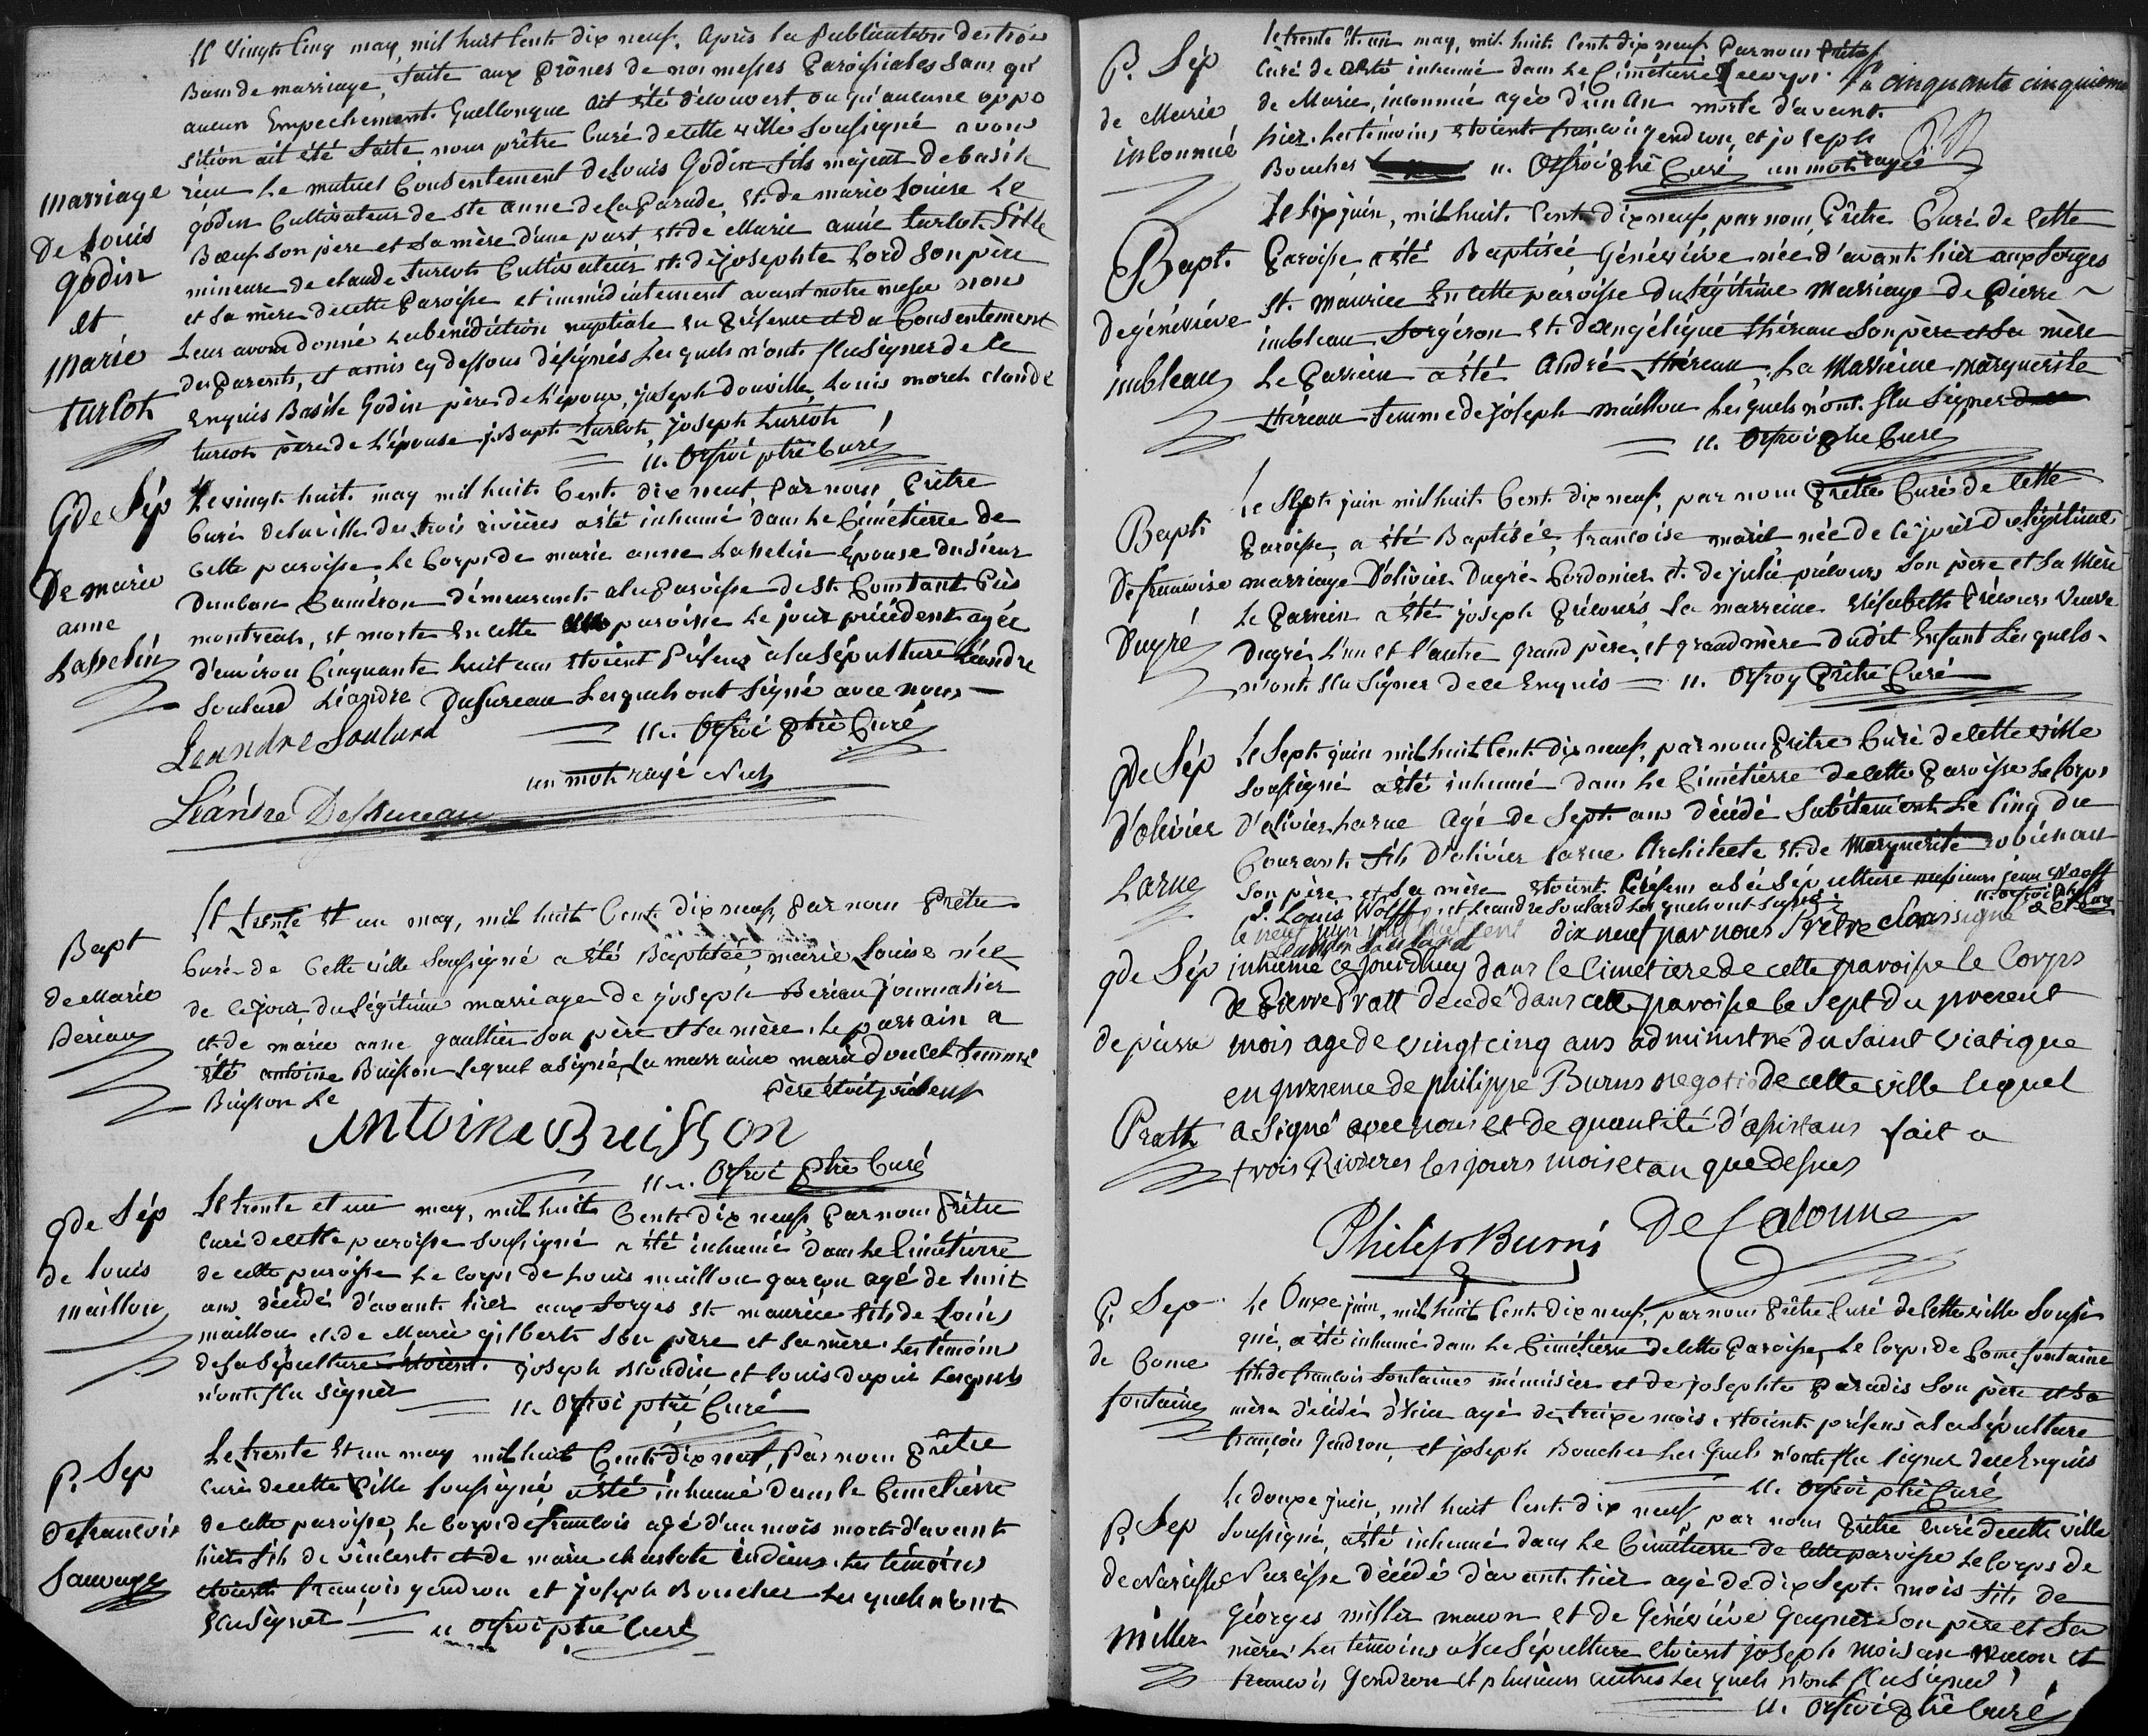 Le vingt Cinq may, mil huit Cent dix neuf. après la Publication des trois
Bans de marriage, faite aux Prônes de nos messes Paroissiales sans qu'
aucun Empechement quellonque ait été découvert ou qu'aucune oppo
sition ait été faite, nous prêtre Curé de cette ville soussigné avons
marriage
de Louis
godin
et
marie
turcot
réçu le mutuel Consentement de Louis Godin fils majeur de basile
godin Cultivateur de Ste anne de la Parade, et de marie Louise Le
Boeuf son père et sa mère d'une part, et de Marie anne turcot fille
mineure de claude turcot Cultivateur et de josephte Lord son père
et sa mère de cette Paroisse et immédiatement avant notre messe nous
leur avons donné la bénédiction nuptiale en Présence et du Consentement
des Parents, et amis cy dessous désignés Lesquels n'ont sçu signer de ce
Enquis Basile Godin père de l'époux, joseph douville, Louis claude
turcot père de l'épouse j. Bapt. turcot, joseph turcot
N. Orfroi ptre Curé
gde Sép
De marie
anne
Lasselin
Le vingt huit may mil huit Cent dix neuf, Par nous Prêtre
Curé de la ville des trois rivières a été inhumé dans le Cimétierre de
cette paroisse, le Corps de marie anne Lasselin Épouse du Sieur
Duncan Caméron démeurant a la Paroisse de St. Constant Près
montreal, et morte en cette paroisse le jour précédent agée
d'environ Cinquante huit ans étoient Présens à la Sépulture Léandre
Soulard Léandre Dufureau Lesquels ont signé avec nous —
Leandre Soulard
N. Orfroi ptre Curé
un mot rayé Nul
Léandre
Bapt
de Marie
Beriau
Le Trente et un may, mil huit Cent dix neuf, par nous Prêtre
Curé de Cette ville soussigné a été Baptisée, marie Louise née
de ce jour, du légitime marriage de joseph Beriau journalier
et de marie anne gaultier son père et sa mère. Le parrain a
été antoine Buisson lequel a signé, la marraine marie doucet femme
Buisson Le Père étoit présent
Antoine Buisson
N. Orfroi ptre Curé
gde Sép
de Louis
maillou
Le trente et un may, mil huit Cent dix neuf, Par nous Prêtre
Curé de cette paroisse soussigné a été inhumé dans le Cimétierre
de cette paroisse Le Corps de Louis maillou garçon agé de huit
ans décédé d'avant hier aux Forges St. maurice fils de Louis
maillou et de Marie gilbert son père et sa mère. Les témoins
de sa sépulture étoient joseph et Louis dupui lesquels
n'ont sçu signér
N. Orfroi ptre Curé
P. Sep
De francois
Sauvage
Le trente et un may mil huit Cent dix neuf, Par nous Prêtre
Curé de cette Ville soussigné, a été inhumé dans le Cimetiérre
de cette paroisse, le Corps de francois agé d'un mois mort d'avant
hier fils de vincent et de marie charlote indiens. Les témoins
étoient francois gendron et joseph Boucher lesquels n'ont
sçu signér
N. Orfroi ptre Curé
P. Sép
de Marie
inconnué
Le trente et un may, mil huit Cent dix neuf, Par nous Prêtre
Curé de été inhumé dans le Cimétierre le corps
cinquante cinquieme
de Marie, inconnuée agée d'un an morte d'avant
hier. Les témoins étoient francois gendron, et joseph
Boucher N. Orfroi ptre Curé un mot rayé
Bapt.
de géniviéve
imbleau
Le Six juin, mil huit Cent dix neuf, par nous Prêtre Curé de Cette
Paroisse, a été Baptisée, Généviéve née d'avant hiér aux forges
St. maurice En cette paroisse du légitime Marriage de Pierre
imbleau forgéron et d'angélique théreau son père et sa mère
Le Parrein a été André théreau, La Marreine Marguerite
théreau femme de joseph maillou Lesquels n'ont sçu signer
N. Orfroi ptre Curé
Bapt
De francoise
Dugré
Le Sept juin mil huit Cent dix neuf, par nous Prêtre Curé de Cette
Paroisse, a été Baptisée, francoise marie, née de ce jour du légitime
marriage d'olivier Dugré Cordonier et de julie précours son père et sa Mère
Le Parrein a été joseph Précours, La marreine Elisabeth Précours veuve
Dugré L'un et l'autre grand père, et grand mère dudit Enfant Lesquels
n'ont sçu signer de ce Enquis — N. Orfroy Prêtre Curé
gde Sép
d'olivier
Larue
Le Sept juin mil huit Cent dix neuf, par nous Prêtre Curé de cette ville
soussigné a été inhumé dans le Cimétiérre de cette Paroisse Le Corps
d'olivier Larue agé de Sept ans décédé subitement le Cinq du
Courant fils d'olivier Larue Architecte et de Marguerite robichau
son père et sa mère étoient Présens a la sépulture
L. Louis Wolff, et Leandre Soulard Lesquels ont signé
N. Orfroi
Leandre Soulard
gde Sép
de pierre
Pratt
le neuf juin mil huit cent dix neuf par nous Prêtre soussigné a été
inhumé ce jourdhuy dans le cimetiere de cette paroisse le Corps
de Pierre Pratt decedé dans cette paroisse le sept du present
mois agé de vingt cinq ans administré du saint viatique
en presence de philippe Burns negotit de cette ville lequel
a signé avec nous et de quantité d'assistans fait a
trois Rivieres les jours mois et an que dessus
Philip Burns De Calonne
P. Sep
de Come
fontaine
Le Onze juin, mil huit Cent dix neuf, par nous Prêtre Curé de Cette ville Soussi
gné, a été inhumé dans le Cimétierre de Cette Paroisse, Le Corps de Come fontaine
fils de francois fontaine ménuisier et de josephte Paradis son père et sa
mère décédé d'hier agé de treize mois, étoient présens a la Sépulture
françois gendron, et joseph Boucher Lesquels n'ont sçu signer de ce Enquis
N. Orfroi ptre Curé
P. Sep
de Narcisse
Miller
Le douze juin, mil huit Cent dix neuf, par nous Prêtre Curé de cette ville
Soussigné, a été inhumé dans le Cimétierre de cette paroisse le Corps de
Narcisse décédé d'avant hier agé de dix Sept mois fils de
Géorges miller macon et de Généviéve Gagnér son père et sa
mère. Les témoins a la Sépulture étoient joseph moisan macon et
francois Gendron et plusieurs autres Lesquels n'ont sçu signer
N. Orfroi ptre Curé